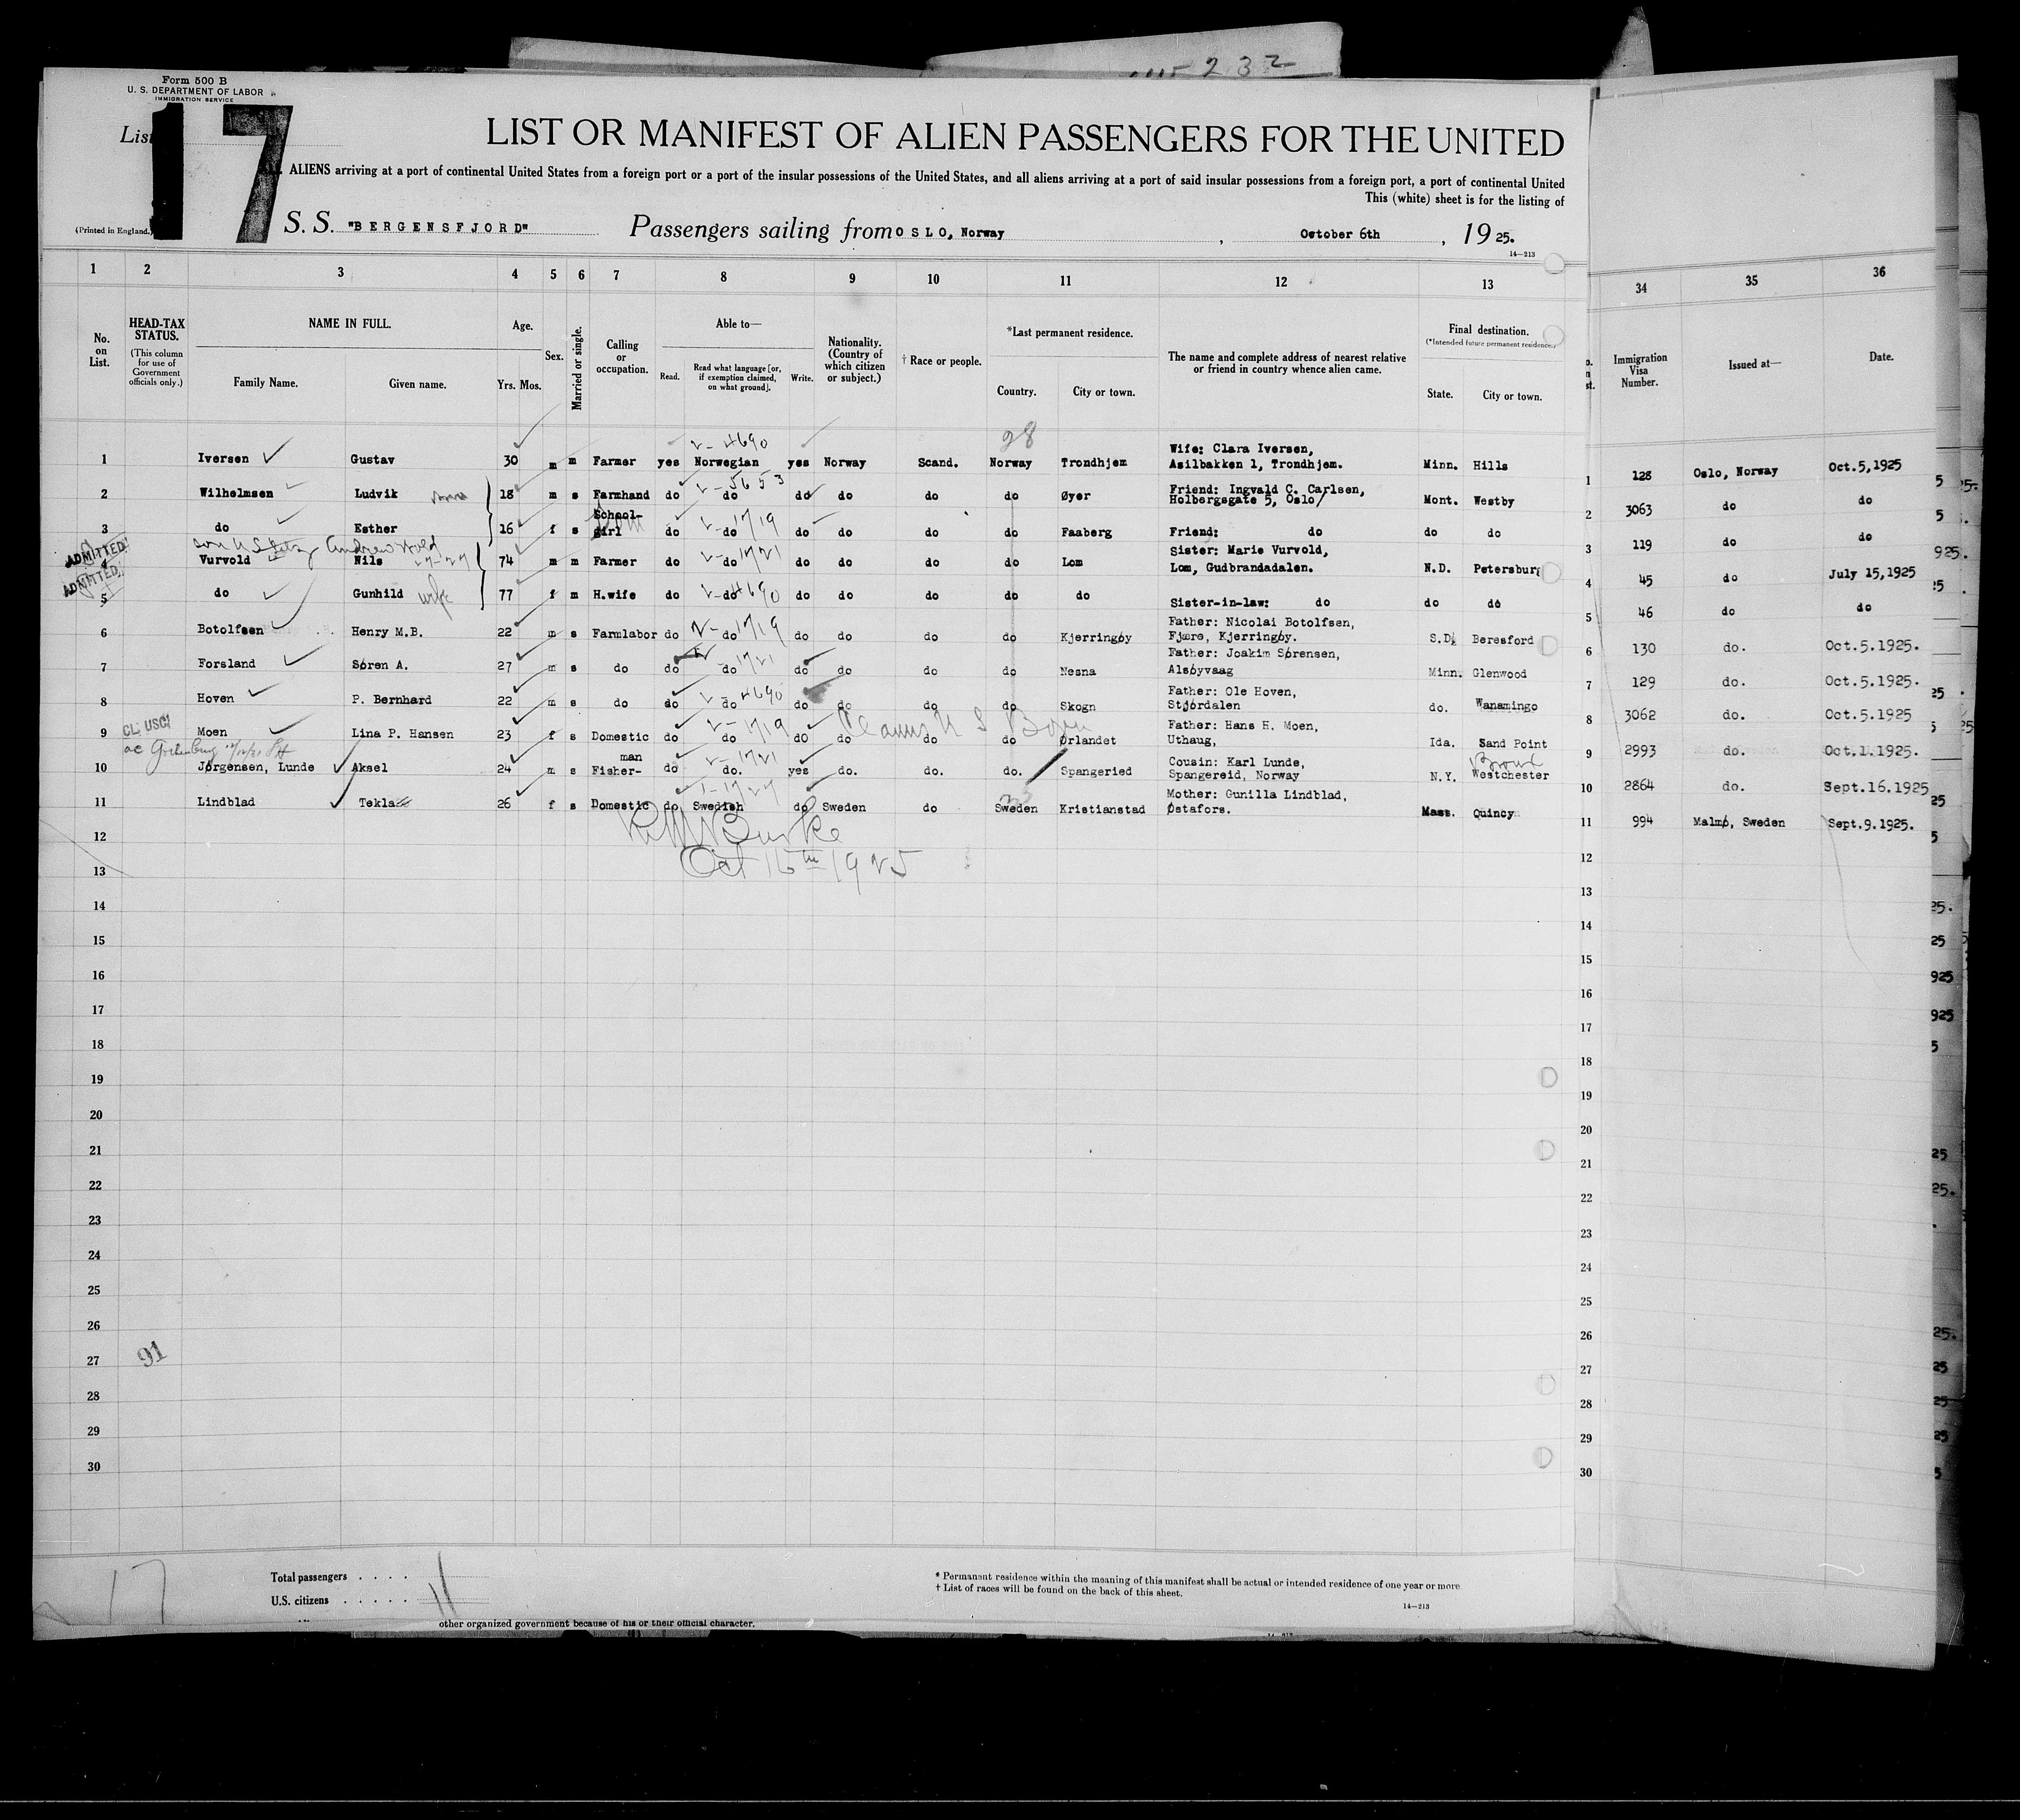 232
Form 500 B
U. S. DEPARTMENT OF LABOR
IMMIGRATION SERVICE
List 17
LIST OR MANIFEST OF ALIEN PASSENGERS FOR THE UNITED
ALIENS arriving at a port of continental United States from a foreign port or a port of the insular possessions of the United States, and all aliens arriving at a port of said insular possessions from a foreign port, a port of continental United
This (white) sheet is for the listing of
(Printed in England.)
S. S. "BERGENSFJORD" Passengers sailing from OSLO, Norway , October 6th , 1925.
14—213
1 2 3 4 5 6 7 8 9 10 11 12 13 34 35 36
No. on List.
HEAD-TAX STATUS.
(This column for use of Government officials only.)
NAME IN FULL.
Family Name. Given name.
Age.
Yrs. Mos.
Sex.
Married or single.
Calling or occupation.
Able to—
Read. Read what language [or, if exemption claimed, on what ground]. Write.
Nationality. (Country of which citizen or subject.)
† Race or people.
*Last permanent residence.
Country. City or town.
The name and complete address of nearest relative or friend in country whence alien came.
Final destination.
(*Intended future permanent residence.)
State. City or town.
Immigration Visa Number.
Issued at—
Date.
2-4690 28
1 Iversen Gustav 30 m m Farmer yes Norwegian yes Norway Scand. Norway Trondhjem Wife: Clara Iversen, Asilbakken 1, Trondhjem. Minn. Hills 1 128 Oslo, Norway Oct.5,1925
2-5653
2 Wilhelmsen Ludvik 18 m s Farmhand do do do do do do Øyer Friend: Ingvald C. Carlsen, Holbergsgate 5, Oslo/ Mont. Westby 2 3063 do do
2-1719
3 do Esther 16 f s School-girl do do do do do do Faaberg Friend: do do do 3 119 do do
ADMITTED
2-1721
4 Vurvold Nils 74 m m Farmer do do do do do do Lom Sister: Marie Vurvold, Lom, Gudbrandadalen. N.D. Petersburg 4 45 do July 15,1925
ADMITTED
2-4690
5 do Gunhild wife 77 f m H.wife do do do do do do do Sister-in-law: do do do 5 46 do do
2-1719
6 Botolfsen Henry M.B. 22 m s Farmlabor do do do do do do Kjerringøy Father: Nicolai Botolfsen, Fjære, Kjerringøy. S.D. Beresford 6 130 do. Oct.5.1925.
1721
7 Forsland Søren A. 27 m s do do do do do do do Nesna Father: Joakim Sørensen, Alsøyvaag Minn. Glenwood 7 129 do. Oct.5.1925.
2-4690
8 Hoven P. Bernhard 22 m s do do do do do do do Skogn Father: Ole Hoven, Stjördalen do. Wanamingo 8 3062 do. Oct.5.1925
CL: USC!
2-1719 Claims U S Born
9 Moen Lina P. Hansen 23 f s Domestic do do do do do do Ørlandet Father: Hans H. Moen, Uthaug, Ida. Sand Point 9 2993 do. Oct.1.1925.
2-1721
10 Jørgensen, Lunde Aksel 24 m s Fisher-man do do. yes do. do. do. Spangeried Cousin: Karl Lunde, Spangereid, Norway N.Y. Westchester 10 2864 do. Sept.16.1925
1-1727
11 Lindblad Tekla 26 f s Domestic do Swedish do Sweden do Sweden Kristianstad Mother: Gunilla Lindblad, Østafors. Mass. Quincy 11 994 Malmø, Sweden Sept.9.1925.
Burke
Oct 16th 1925
12 12
13 13
14 14
15 15
16 16
17 17
18 18
19 19
20 20
21 21
22 22
23 23
24 24
25 25
26 26
91
27 27
28 28
29 29
30 30
17
Total passengers . . . .
11
U.S. citizens . . . . .
* Permanent residence within the meaning of this manifest shall be actual or intended residence of one year or more
† List of races will be found on the back of this sheet.
14—213
other organized government because of his or their official character.